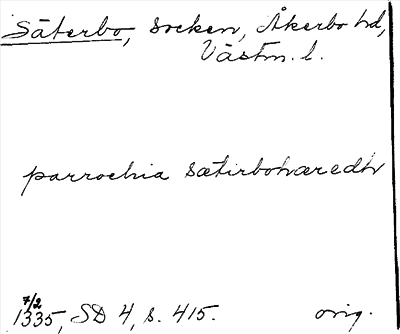 Säterbo, socken, Åkerbo hd,
Västm. l.
parrochia sætirbohæredh
7/2
1335, SD 4, s. 415. orig.